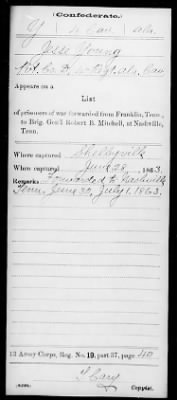 (Confederate.)
Y 4 Cav Ala.
Jesse Young
Pvt. Co. D, 4 Reg't. Ala. Cav
Appears on a
List
of prisoners of war forwarded from Franklin, Tenn.,
to Brig. Gen'l Robert B. Mitchell, at Nashville,
Tenn.
Where captured Shelbyville
When captured June 28, 1863.
Remarks: Forwarded to Nashville
Tenn, June 30, July 1, 1863.
13 Army Corps, Reg. No. 19, part 27, page 40
Cary
Copyist.